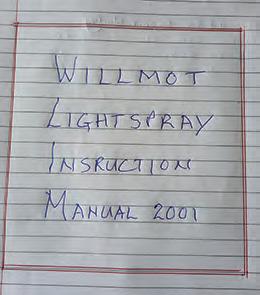 WILLMOT
LIGHTSPRAY
INSRUCTION
MANUAL 2001